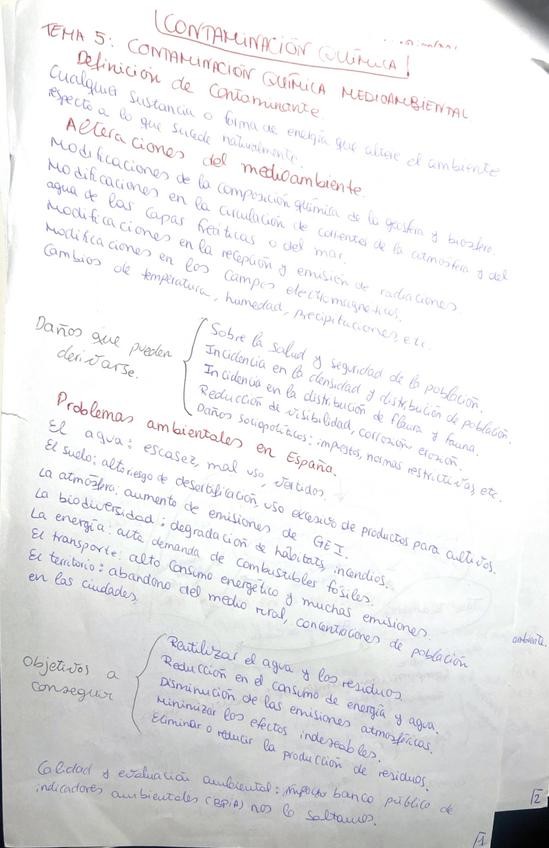 CONTAMINACIÓN QUÍMICA
TEMA 5: CONTAMINACIÓN QUÍMICA MEDIOAMBIENTAL
Definición de Contaminante.
Cualquier sustancia o forma de energía que altere el ambiente
respecto a lo que sucede naturalmente.
Alteraciones del medioambiente.
Modificaciones de la composición química de la geosfera y biosfera.
Modificaciones en la circulación de corrientes de la atmosfera y del
agua de las capas freáticas o del mar.
Modificaciones en la recepción y emisión de radiaciones
Modificaciones en los campos electromagnéticos.
Cambios de temperatura, humedad, precipitaciones, etc.
Daños que pueden
derivarse.
Sobre la salud y seguridad de la población.
Incidencia en la densidad y distribución de población.
Incidencia en la distribución de flaura y fauna.
Reducción de visibilidad, corrosión, erosión.
Daños sociopolíticos: impuestos, normas restrictivas, etc.
Problemas ambientales en España.
El agua: escasez, mal uso, vertidos.
El suelo: alto riesgo de desertificación, uso excesivo de productos para cultivos.
La atmósfera: aumento de emisiones de GEI.
La biodiversidad: degradación de hábitats, incendios.
La energía: alta demanda de combustibles fosiles.
El transporte: alto consumo energético y muchas emisiones.
El territorio: abandono del medio rural, concentraciones de población
en las ciudades.
ambiente.
Objetivos a
conseguir
Reutilizar el agua y los residuos.
Reducción en el consumo de energía y agua.
Disminución de las emisiones atmosféricas.
Minimizar los efectos indeseables.
Eliminar o reducir la producción de residuos.
Calidad y evaluación ambiental: impacto banco público de
indicadores ambientales (BPIA) nos lo saltamos.
1
2